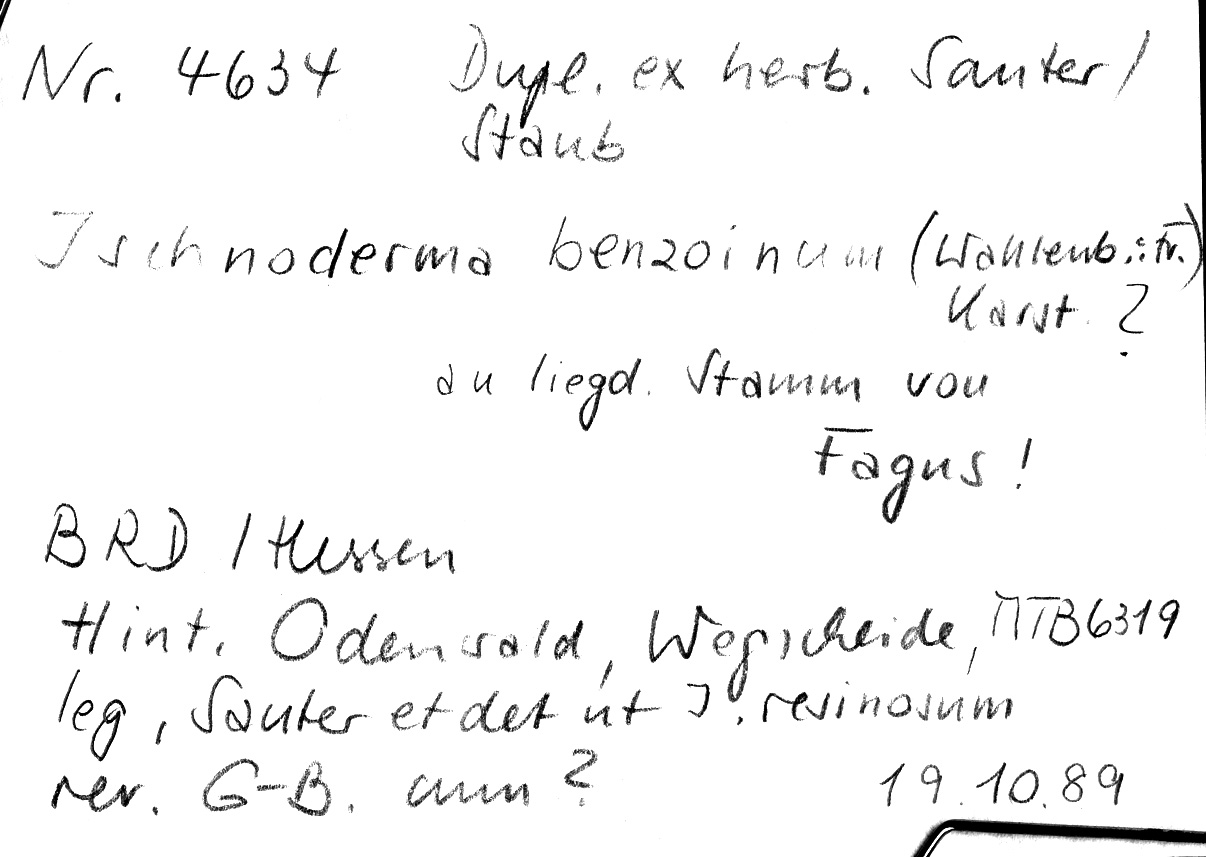 Nr. 4634 Dupl. ex herb. Sauter /
Staub
Ischnoderma benzoinum (Wahlenb.: Fr.)
Karst. ?
an liegd. Stamm von
Fagus !
BRD / Hessen
Hint. Odenwald, Wegscheide, MTB 6319
leg, Sauter et det ut I. resinosum
rev. G-B. cum ?
19.10.89